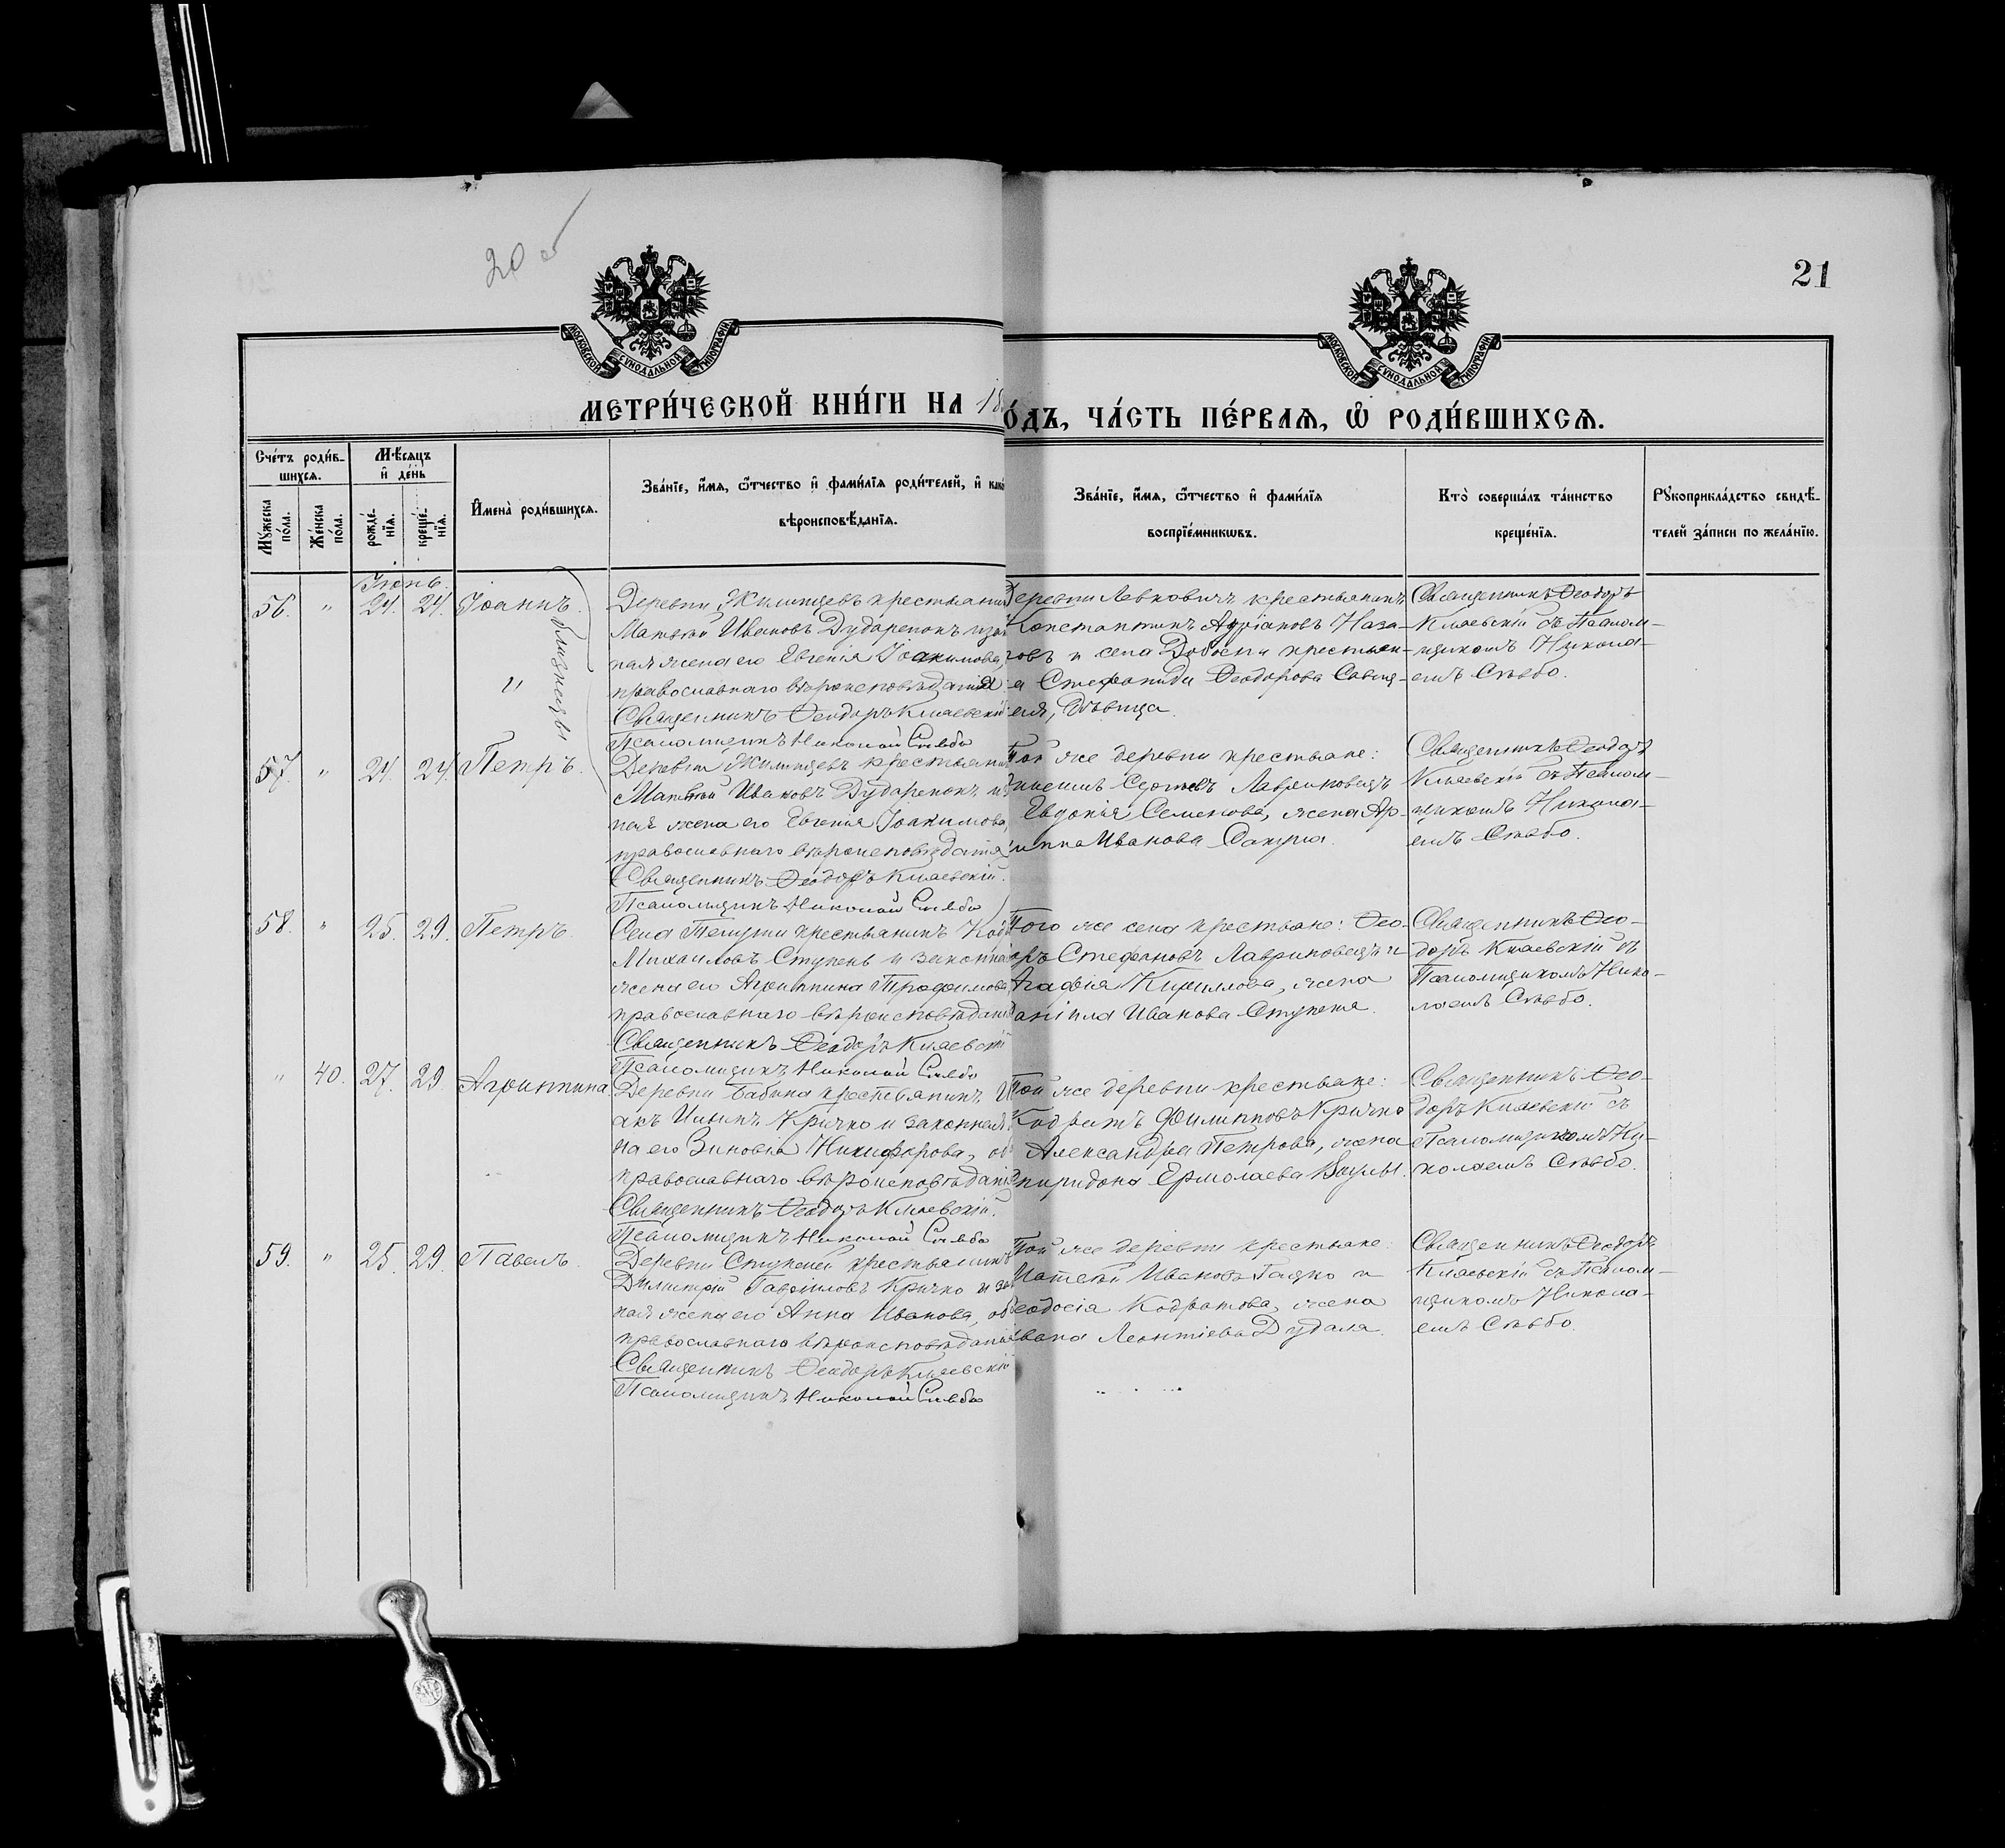 20 об
21
МОСКОВСКОЙ СѴНОДАЛЬНОЙ ТИПОГРАФІИ
МОСКОВСКОЙ СѴНОДАЛЬНОЙ ТИПОГРАФІИ
МЕТРИ́ЧЕСКОЙ КНИ́ГИ НА 18
О́ДЪ, ЧА́СТЬ ПЕ́РВАЯ, Ѽ РОДИ́ВШИХСЯ.
Сче́тъ роди́в-
шихся.
Мꙋ́жеска по́ла.
Же́нска по́ла.
Мѣ́сяцъ и҆ де́нь
рожде́-нїя.
креще́-нїя.
И҆мена̀ роди́вшихся.
Зва́нїе, и҆́мя, ѻ҆́тчество и҆ фами́лїя роди́телей, и҆ како
вѣроисповѣ́данїя.
Зва́нїе, и҆́мя, ѻ҆́тчество и҆ фами́лїя
воспрїе́мникѡвъ.
Кто̀ соверша́лъ та́инство
креще́нїя.
Рꙋкоприкла́дство свидѣ́-
телей за́писи по жела́нїю.
Іюнь.
56. " 24. 24. Іоаннъ.
близнецы
Деревни Жилинцевъ крестьянин
Матѳей Ивановъ Дударенокъ и закон
ная жена его Евгенія Іоакимова,
православнаго вѣроисповѣданія
Священникъ Ѳеодоръ Княевскій
Псаломщикъ Николай Слѣбо
Деревни Левковичъ крестьянинъ
Константинъ Адріановъ Наза-
ровъ и села крестьян-
а Стефанида Ѳеодорова
дѣвица.
Священникъ Ѳеодоръ
Княевскій съ Псалом-
щикомъ Никола-
емъ Слѣбо.
57. " 24. 24. Петръ.
Деревни Жилинцевъ крестьянин
Матѳей Ивановъ Дударенокъ и
ная жена его Евгенія Іоакимова,
православнаго вѣроисповѣданія
Священникъ Ѳеодоръ Княевскій.
Псаломщикъ Николай Слѣбо
Той же деревни крестьяне:
Лавриновецъ
Евдокія Семенова, жена
Иванова
Священникъ Ѳеодоръ
Княевскій съ Псалом-
щикомъ Никола-
емъ Слѣбо.
58. " 25. 29. Петръ.
Села Телуши крестьянинъ
Михаиловъ Ступень и законная
жена его Агриппина Трофимова,
православнаго вѣроисповѣданія
Священникъ Ѳеодоръ Княевскій
Псаломщикъ Николай Слѣбо
Того же села крестьяне: Ѳео-
доръ Стефановъ Лавриновецъ и
Агафія Кириллова, жена
Даніила Иванова Ступеня.
Священникъ Ѳео-
доръ Княевскій съ
Псаломщикомъ Нико-
лаемъ Слѣбо.
" 40. 27. 29 Агриппина
Деревни Бабина крестьянинъ
акъ Ильинъ Кричко и законная
на его Зиновія Никифорова, об
православнаго вѣроисповѣданія
Священникъ Ѳеодоръ Княевскій.
Псаломщикъ Николай Слѣбо
Той же деревни крестьяне:
Кодратъ Филипповъ Кричко
Александра Петрова, жена
Спиридона Ермолаева
Священникъ Ѳео-
доръ Княевскій съ
Псаломщикомъ Ни-
колаемъ Слѣбо.
59. " 25. 29. Павелъ.
Деревни Ступеней крестьянинъ
Димитрій Гавріиловъ Кричко и за
ная жена его Анна Иванова, об
православнаго вѣроисповѣданія
Священникъ Ѳеодоръ Княевскій
Псаломщикъ Николай Слѣбо
Той же деревни крестьяне:
Ивановъ и
Ѳеодосія Кодратова, жена
Ивана Леонтіева Дудаля.
Священникъ Ѳеодоръ
Княевскій съ Псалом-
щикомъ Никола-
емъ Слѣбо.